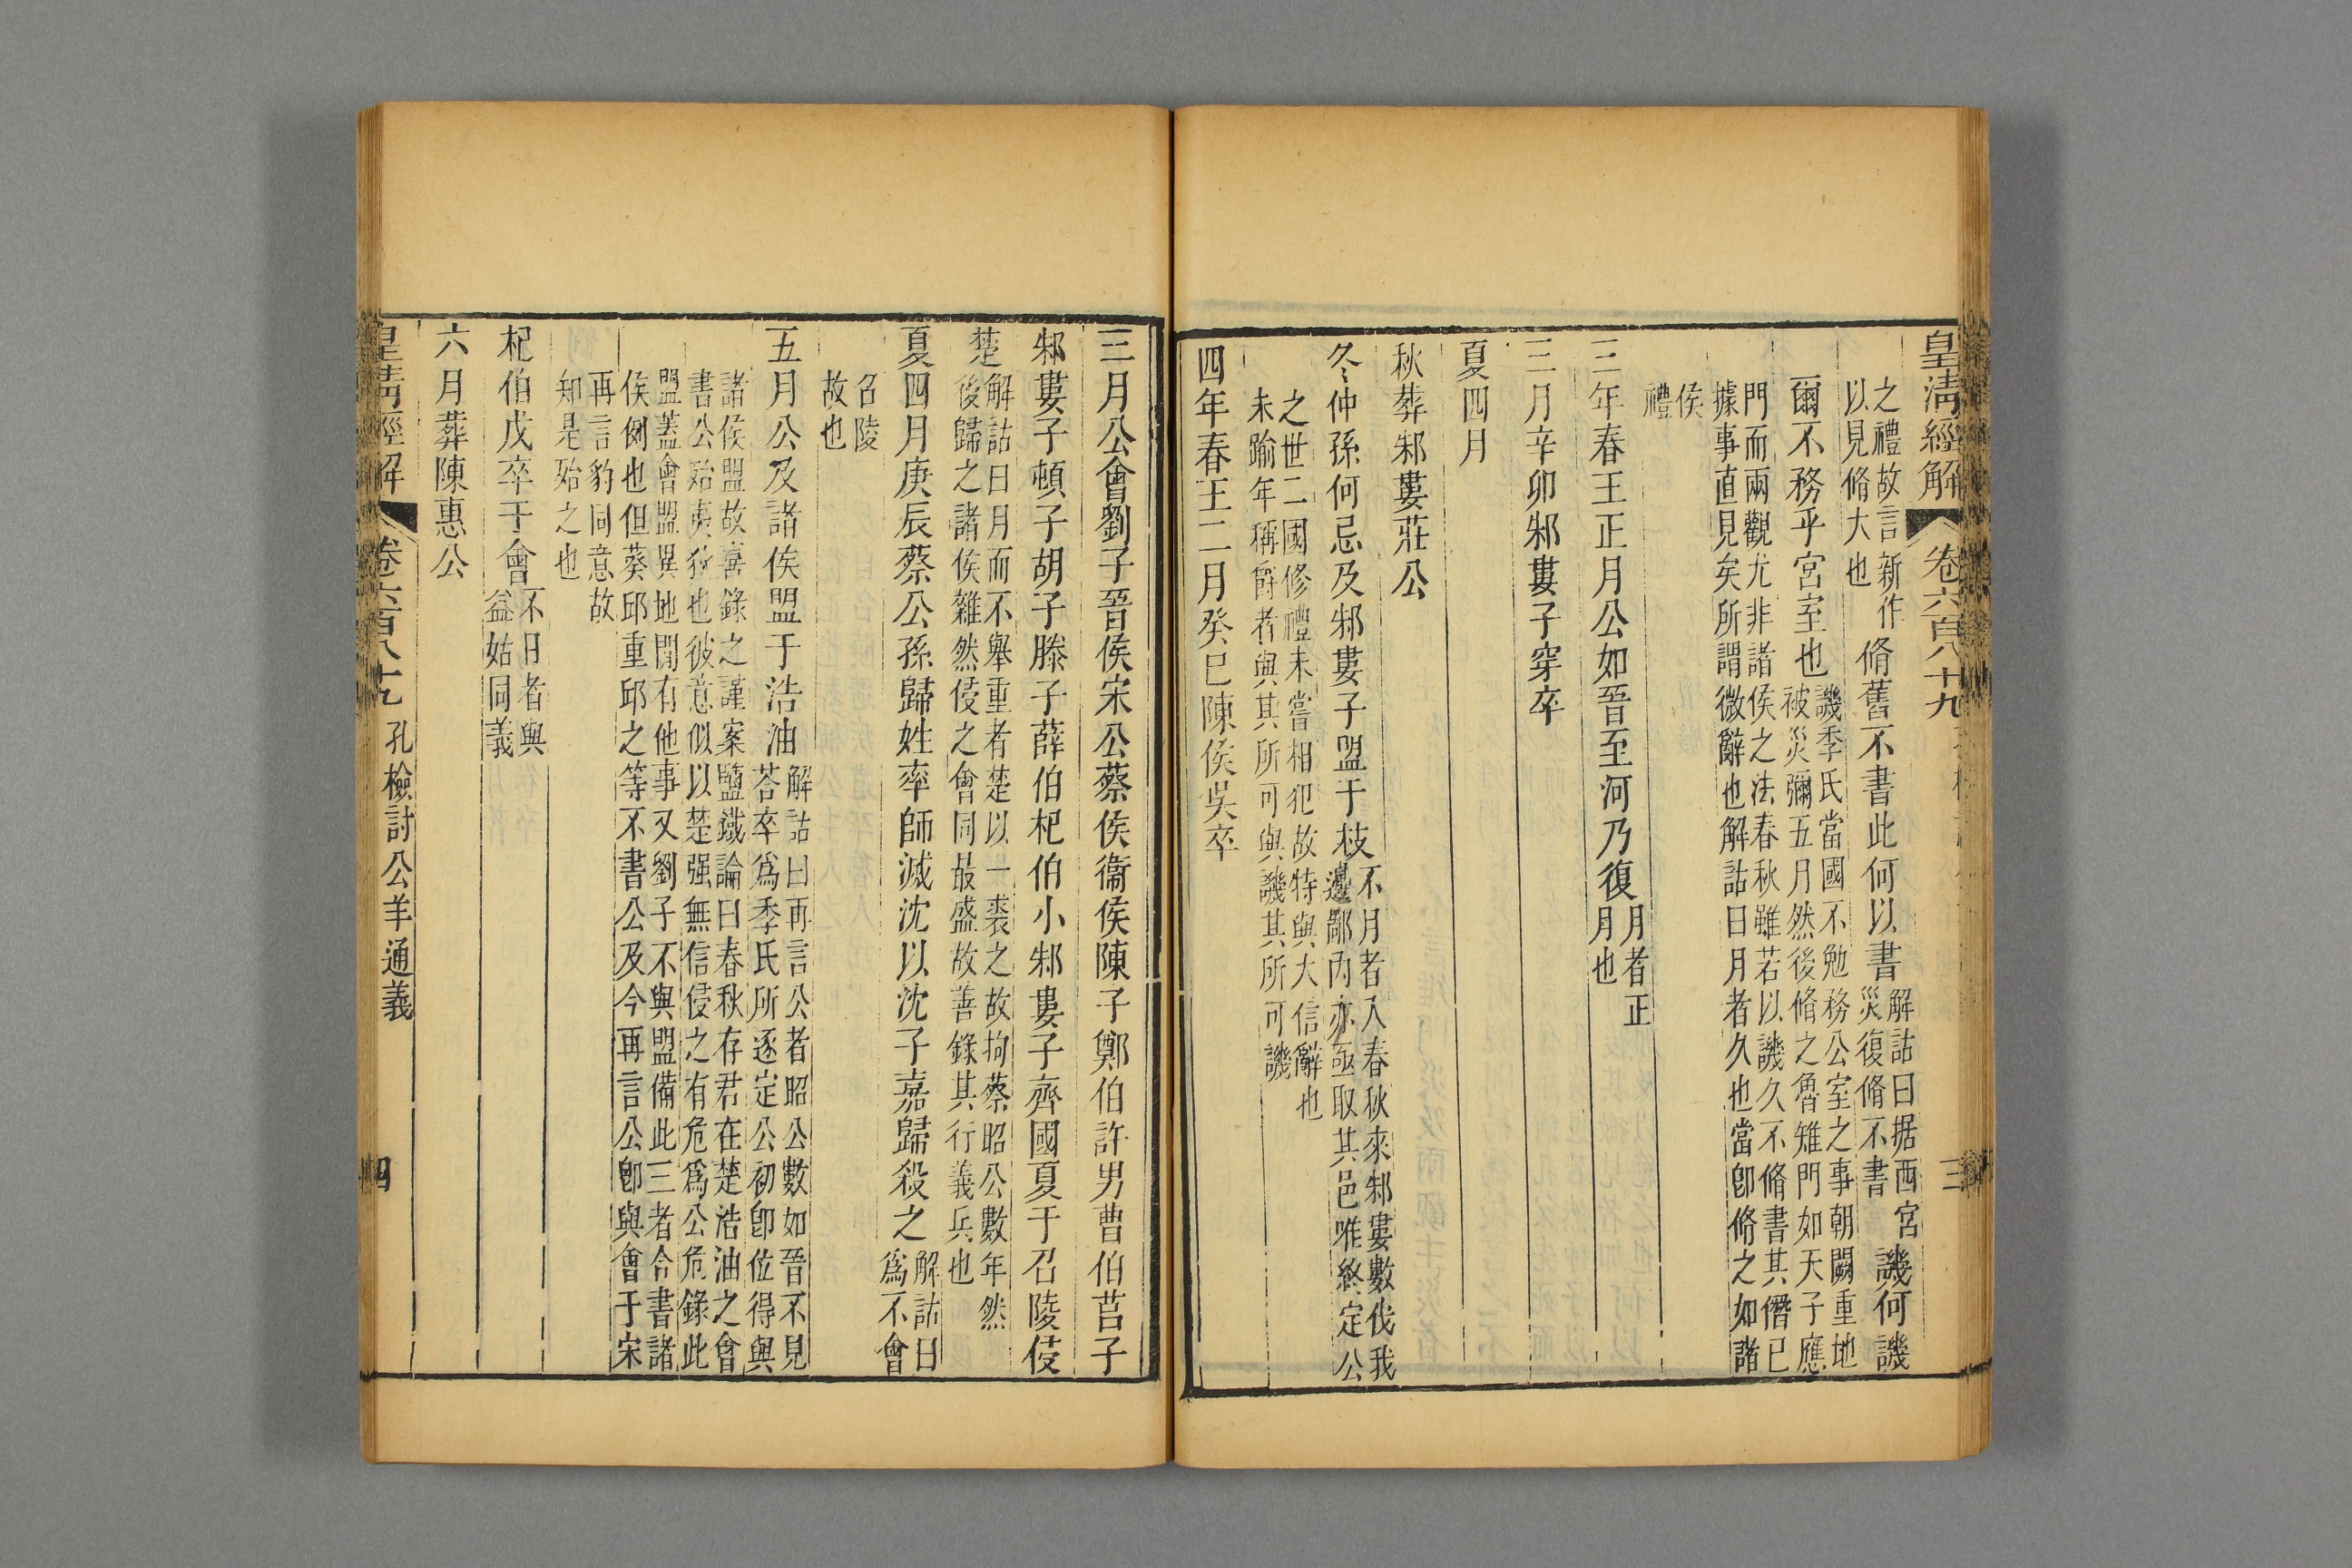 皇清經解 卷六百八十九 三
之禮故言新作
以見脩大也
脩舊不書此何以書
解詁曰据西宮
災復脩不書
譏何譏
爾不務乎宮室也
譏季氏當國不勉務公室之事朝闕重地
被災彌五月然後脩之魯雉門如天子應
門而兩觀尤非諸侯之法春秋雖若以譏久不脩書其僭已
據事直見矣所謂微辭也解詁曰月者久也當卽脩之如諸
侯
禮
三年春王正月公如晉至河乃復
月者正
月也
三月辛卯邾婁子穿卒
夏四月
秋葬邾婁莊公
冬仲孫何忌及邾婁子盟于枝
不月者入春秋來邾婁數伐我
邊鄙內亦亟取其邑唯終定公
之世二國修禮未嘗相犯故特與大信辭也
未踰年稱爵者與其所可與譏其所可譏
四年春王二月癸巳陳侯吳卒
三月公會劉子晉侯宋公蔡侯衞侯陳子鄭伯許男曹伯莒子
邾婁子頓子胡子滕子薛伯杞伯小邾婁子齊國夏于召陵侵
楚
解詁曰月而不舉重者楚以一裘之故拘蔡昭公數年然
後歸之諸侯雜然侵之會同最盛故善錄其行義兵也
夏四月庚辰蔡公孫歸姓率師滅沈以沈子嘉歸殺之
解詁曰
爲不會
召陵
故也
五月公及諸侯盟于浩油
解詁曰再言公者昭公數如晉不見
荅卒爲季氏所逐定公初卽位得與
諸侯盟故喜錄之謹案鹽鐵論曰春秋存君在楚浩油之會
書公殆夷狄也彼意似以楚强無信侵之有危爲公危錄此
盟蓋會盟異地閒有他事又劉子不與盟備此三者合書諸
侯例也但葵邱重邱之等不書公及今再言公卽與會于宋
再言豹同意故
知是殆之也
杞伯戊卒于會
不日者與
益姑同義
六月葬陳惠公
皇清經解 卷六百八十九 孔檢討公羊通義 四